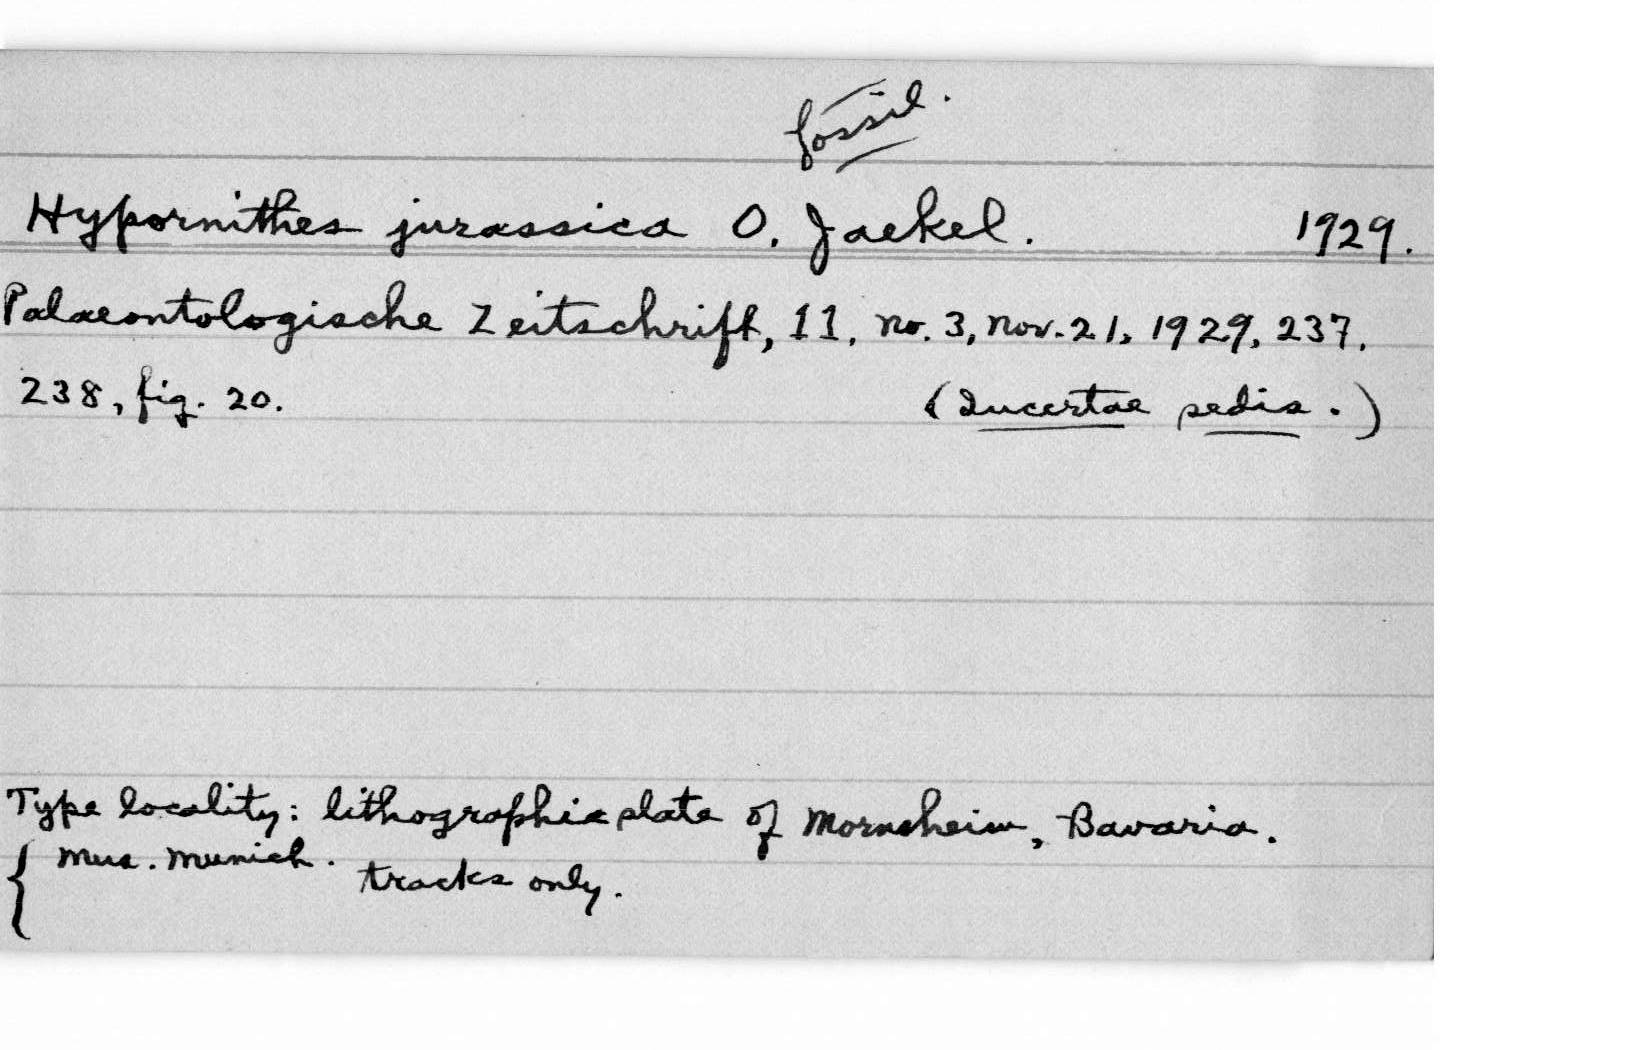 fossil.
Hypornithes jurassica O. Jaekel. 1929.
Palaeontologische Zeitschrift, 11, no. 3, Nov. 21, 1929, 237,
238, fig. 20. (Incertae sedis.)
Type locality: lithographic plate of Mornsheim, Bavaria.
{ Mus. Munich. tracks only.